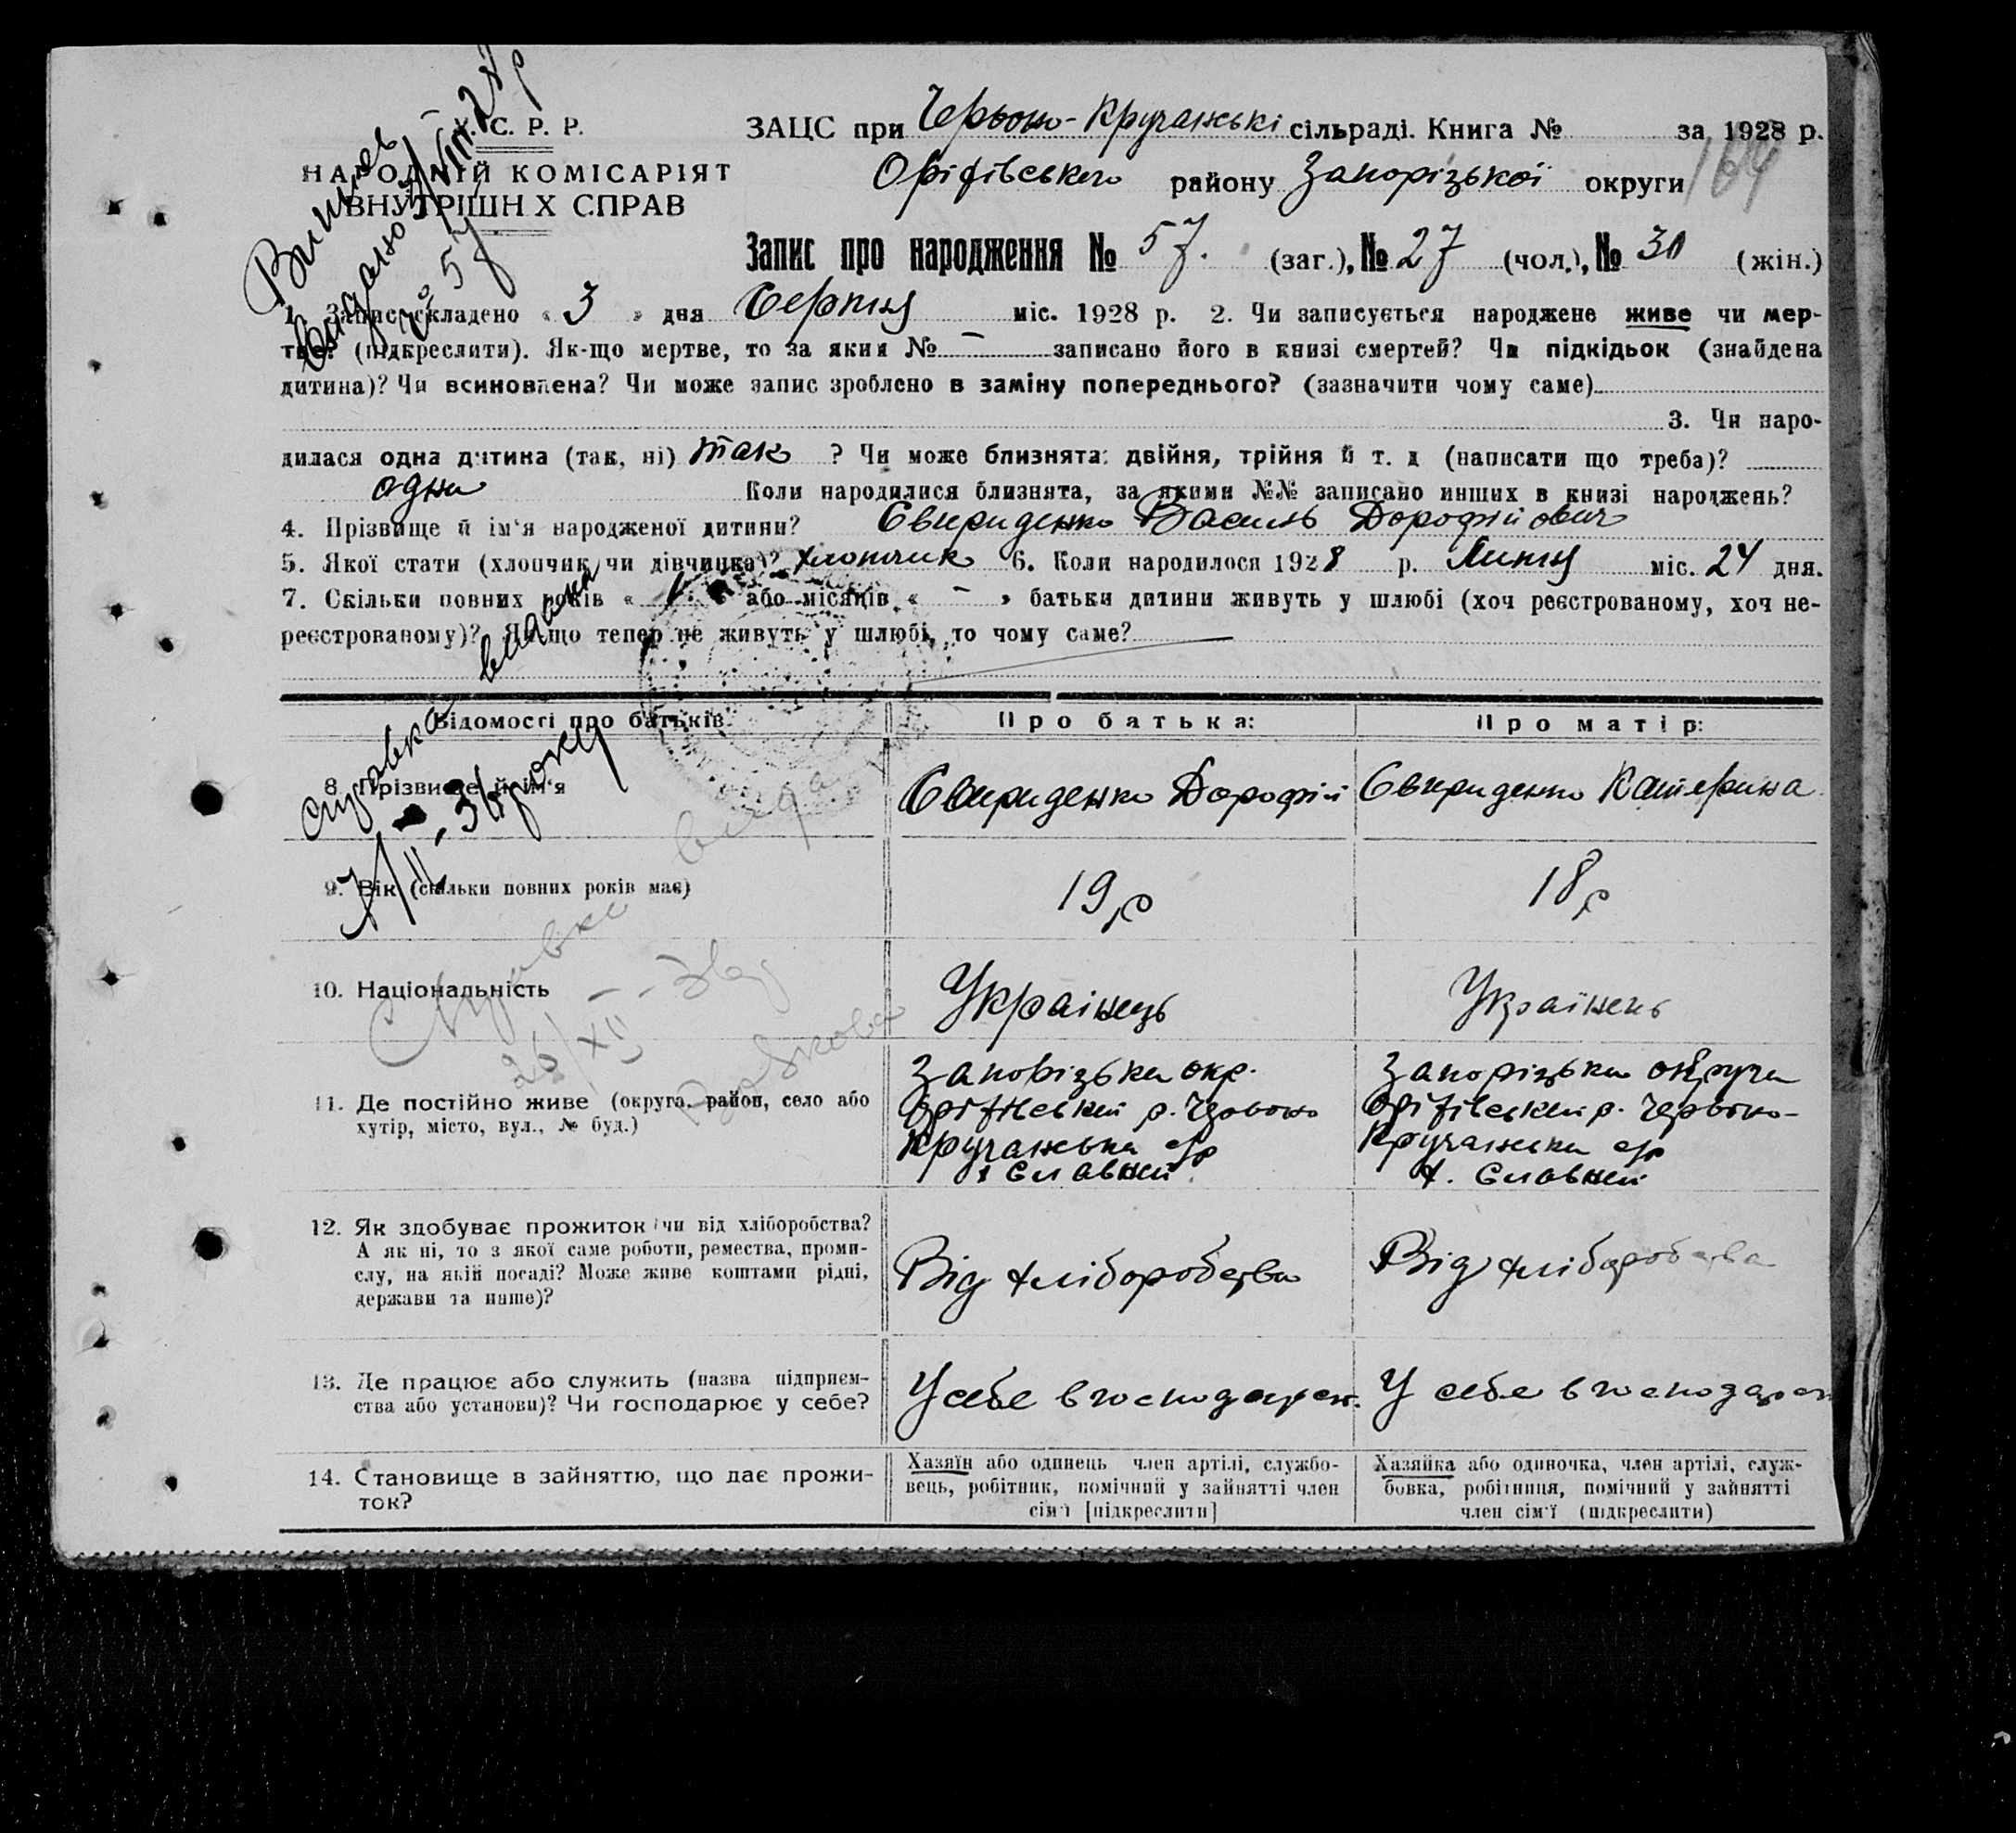 С. Р. Р.
НАРОДНІЙ КОМІСАРІЯТ
ВНУТРІШН Х СПРАВ
Випись
видано
№ 57
ЗАЦС при Червоно-Кручанські сільраді. Книга № за 1928 р.
Оріхівського району Запорізької округи
164
Запис про народження № 57. (заг.), № 27 (чол.), № 30 (жін.)
1. Запис складено « 3 » дня Серпня міс. 1928 р. 2. Чи записується народжене живе чи мер-
тве? (підкреслити). Як-що мертве, то за яким № — записано його в книзі смертей? Чи підкідьок (знайдена
дитина)? Чи всиновлена? Чи може запис зроблено в заміну попереднього? (зазначити чому саме)
3. Чи наро-
дилася одна дитина (так, ні) так ? Чи може близнята: двійня, трійня й т. д (написати що треба)?
одна Коли народилися близнята, за якими №№ записано инших в книзі народжень?
4. Прізвище й ім'я народженої дитини? Свириденко Василь Дорофійович
5. Якої стати (хлопчик чи дівчинка)? хлопчик 6. Коли народилося 1928 р. Липня міс. 24 дня.
7. Скільки повних років « 1 » або місяців « — » батьки дитини живуть у шлюбі (хоч реєстрованому, хоч не-
реєстрованому)? Як що тепер не живуть у шлюбі, то чому саме? —
Відомості про батьків. Про батька: Про матір:
справка видана
8. Прізвище й ім'я Свириденко Дорофій Свириденко Катерина
9. Вік (скільки повних років має) 19 р 18 р
Справка видана
10. Національність Українець Українець
26/XII
11. Де постійно живе (округа, район, село або
хутір, місто, вул., № буд.)
Запорізька окр.
Оріхівський р. Червоно
Кручанська с/р
х Славний
Запорізька округа
Оріхівський р. Червоно-
Кручанська с/р
х. Славний
12. Як здобуває прожиток чи від хліборобства?
А як ні, то з якої саме роботи, ремества, проми-
слу, на якій посаді? Може живе коштами рідні,
держави та инше)?
Від хліборобства
Від хліборобства
13. Де працює або служить (назва підприєм-
ства або установи)? Чи господарює у себе?
У себе в господарст.
У себе в господарст
14. Становище в зайняттю, що дає прожи-
ток?
Хазяїн або одинець член артілі, службо-
вець, робітник, помічний у зайнятті член
сім'ї [підкреслити]
Хазяйка або одиночка, член артілі, служ-
бовка, робітниця, помічний у зайнятті
член сім'ї (підкреслити)